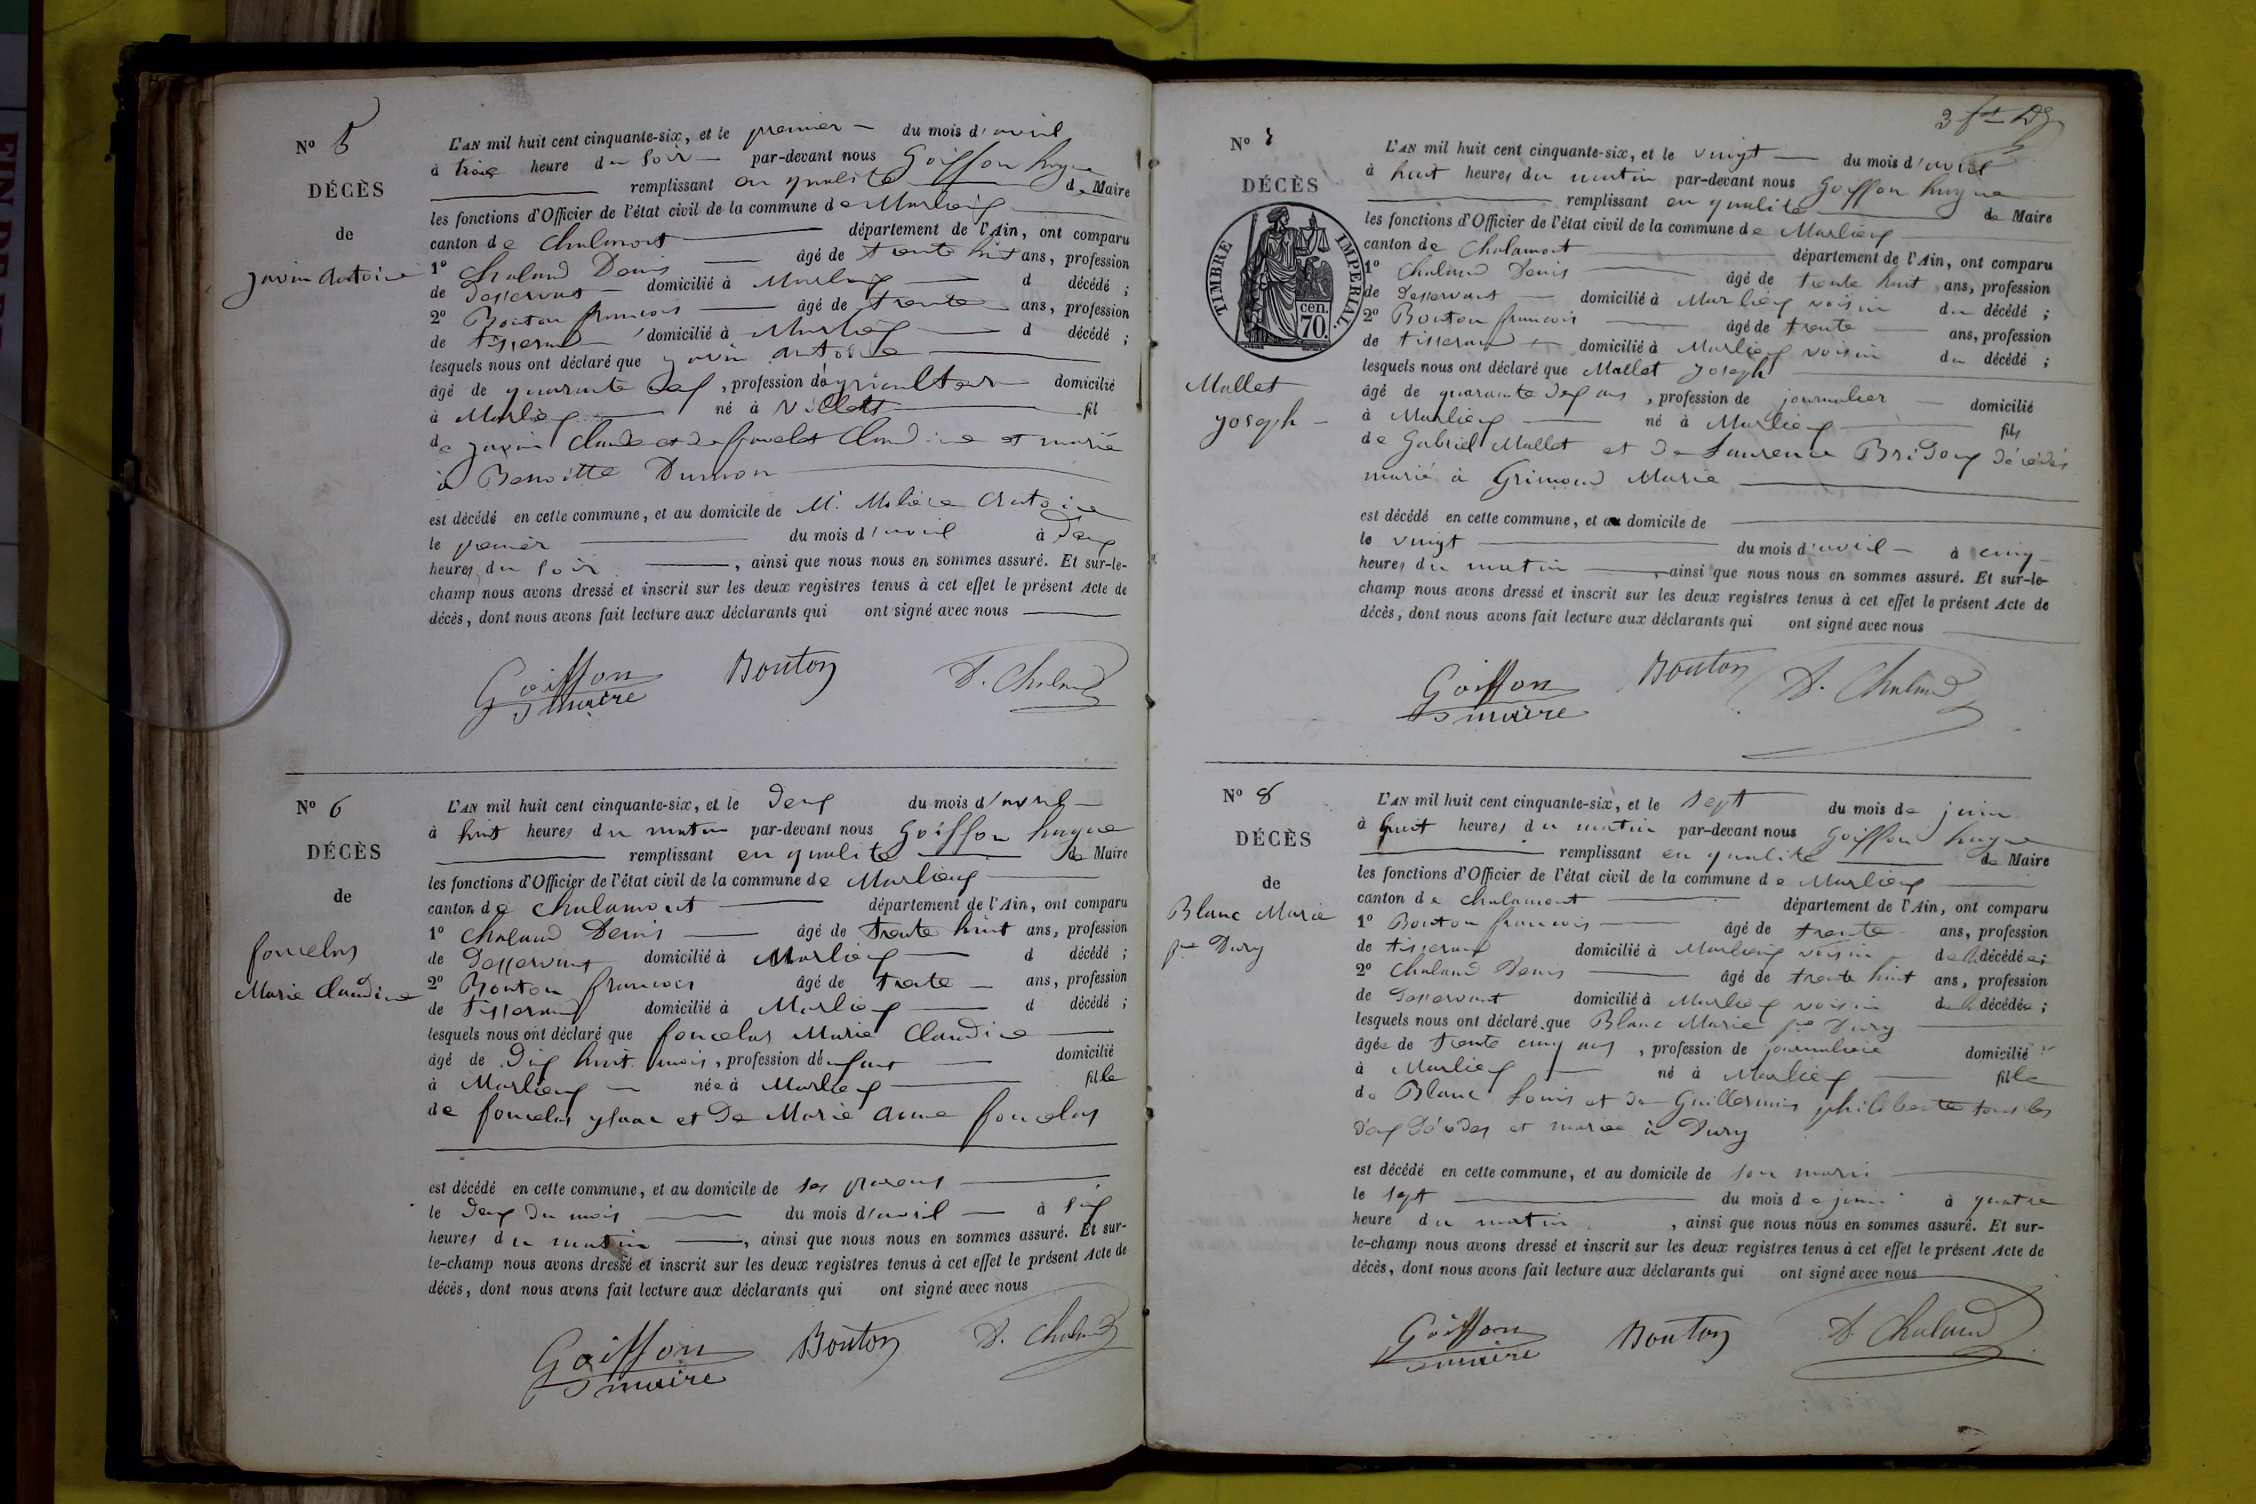 N° 5
DÉCÈS
de
Javin Antoine
L'AN mil huit cent cinquante-six, et le premier du mois d'avril
à trois heure du soir par-devant nous Goiffon hugue
remplissant en qualité de Maire
les fonctions d'Officier de l'état civil de la commune de Marlieux
canton de Chalamont département de l'Ain, ont comparu
1° Chaland Denis âgé de trente huit ans, profession
de desservant domicilié à Marlieux d décédé ;
2° Bouton francois âgé de trente ans, profession
de tisserand domicilié à Marlieux d décédé ;
lesquels nous ont déclaré que javin antoine
âgé de quarante , profession d'agriculter domicilié
à Marlieux né à Villette fil
de javin Claude et de Claudine et marié
à Benoitte
est décédé en cette commune, et au domicile de M. Molière Antoine
le premier du mois d'avril à deux
heures du soir , ainsi que nous nous en sommes assuré. Et sur-le-
champ nous avons dressé et inscrit sur les deux registres tenus à cet effet le présent Acte de
décès, dont nous avons fait lecture aux déclarants qui ont signé avec nous
Goiffon Bouton D. Chaland
maire
N° 6
DÉCÈS
de
foucelas
Marie Claudine
L'AN mil huit cent cinquante-six, et le deux du mois d'avril
à huit heures du matin par-devant nous Goiffon hugue
remplissant en qualité de Maire
les fonctions d'Officier de l'état civil de la commune de Marlieux
canton de Chalamont département de l'Ain, ont comparu
1° Chaland Denis âgé de trente huit ans, profession
de desservant domicilié à Marlieux d décédé ;
2° Bouton francois âgé de trente ans, profession
de tisserand domicilié à Marlieux d décédé ;
lesquels nous ont déclaré que foucelas Marie Claudine
âgé de dix huit mois, profession d'enfant domicilié
à Marlieux née à Marlieux fille
de foucelas ysaac et de Marie anne foucelas
est décédé en cette commune, et au domicile de ses parens
le deux du mois du mois d'avril à six
heures du matin , ainsi que nous nous en sommes assuré. Et sur-
le-champ nous avons dressé et inscrit sur les deux registres tenus à cet effet le présent Acte de
décès, dont nous avons fait lecture aux déclarants qui ont signé avec nous
Goiffon Bouton D. Chaland
maire
N° 7
DÉCÈS
TIMBRE IMPÉRIAL.
70. cen.
Mallet
joseph
L'AN mil huit cent cinquante-six, et le vingt du mois d'avril
à huit heures du matin par-devant nous Goiffon hugue
remplissant en qualité de Maire
les fonctions d'Officier de l'état civil de la commune de Marlieux
canton de Chalamont département de l'Ain, ont comparu
1° Chaland Denis âgé de trente huit ans, profession
de desservant domicilié à Marlieux voisin du décédé ;
2° Bouton francois âgé de trente ans, profession
de tisserand domicilié à Marlieux voisin du décédé ;
lesquels nous ont déclaré que Mallet joseph
âgé de quarante ans, profession de journalier domicilié
à Marlieux né à Marlieux fils
de Gabriel Mallet et de Laurence Bridoux décédés
marié à Grimaud Marie
est décédé en cette commune, et au domicile de
le vingt du mois d'avril à cinq
heures du matin , ainsi que nous nous en sommes assuré. Et sur-le-
champ nous avons dressé et inscrit sur les deux registres tenus à cet effet le présent Acte de
décès, dont nous avons fait lecture aux déclarants qui ont signé avec nous
Goiffon Bouton D. Chaland
maire
N° 8
DÉCÈS
de
Blanc Marie
fe Dury
L'AN mil huit cent cinquante-six, et le sept du mois de juin
à huit heures du matin par-devant nous Goiffon hugue
remplissant en qualité de Maire
les fonctions d'Officier de l'état civil de la commune de Marlieux
canton de chalamont département de l'Ain, ont comparu
1° Bouton francois âgé de trente ans, profession
de tisserand domicilié à Marlieux voisin de la décédée ;
2° Chaland Denis âgé de trente huit ans, profession
de desservant domicilié à Marlieux voisin de la décédée ;
lesquels nous ont déclaré que Blanc Marie fe Dury
âgée de trente cinq ans , profession de journalière domicilié
à Marlieux né à Marlieux fille
de Blanc Louis et de Guillermin philiberte tous les
deux décédés et mariée à Dury
est décédé en cette commune, et au domicile de son mari
le sept du mois de juin à quatre
heure du matin , ainsi que nous nous en sommes assuré. Et sur-
le-champ nous avons dressé et inscrit sur les deux registres tenus à cet effet le présent Acte de
décès, dont nous avons fait lecture aux déclarants qui ont signé avec nous
Goiffon Bouton D. Chaland
maire